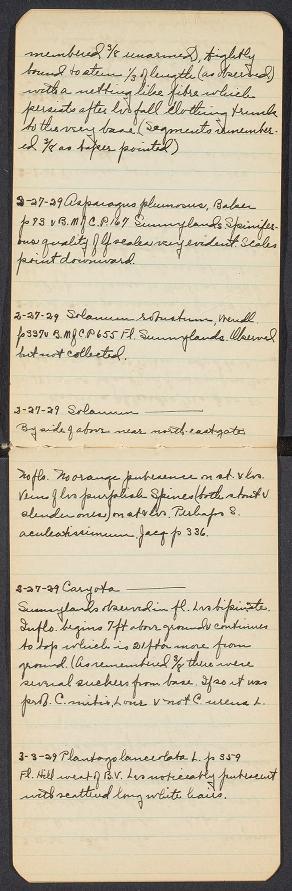 membered 3/8 unarmed, tightly
bound to stem 1/3 of length (as observed)
with a netting like fibre which
persists after lvs fall clothing trunk
to the very base. (Segments remember-
ed 3/8 as taper pointed)
2-27-29 Asparagus plumosus, Baker
p 93 v B.M of C.P 167 Sunnylands. Spinifer-
ous quality of lf scales very evident Scales
point downward.
2-27-29 Solanum robustum, Wendl.
p 337 v B.M of C.P 655 Fl. Sunnylands. Observed
but not collected.
2-27-29 Solanum ———
By side of above near north east gate
No fls. No orange pubescence on st. & lvs.
Veins of lvs purplish Spines (both stout &
slender ones) on st & lvs. Perhaps S.
aculeatissimum Jacq p 336.
2-27-29 Caryota ———
Sunnylands observed in fl. Lvs bipinnate.
Inflo. begins 7ft above ground & continues
to top which is 21 ft or more from
ground. (As remembered 3/8 there were
several suckers from base. If so it was
prob. C. mitis, Lour & not C. urens L.
3-3-29 Plantago lanceolata L. p 359
Fl. Hill west of B.V. Lvs noticeably pubescent
with scattered long white hairs.